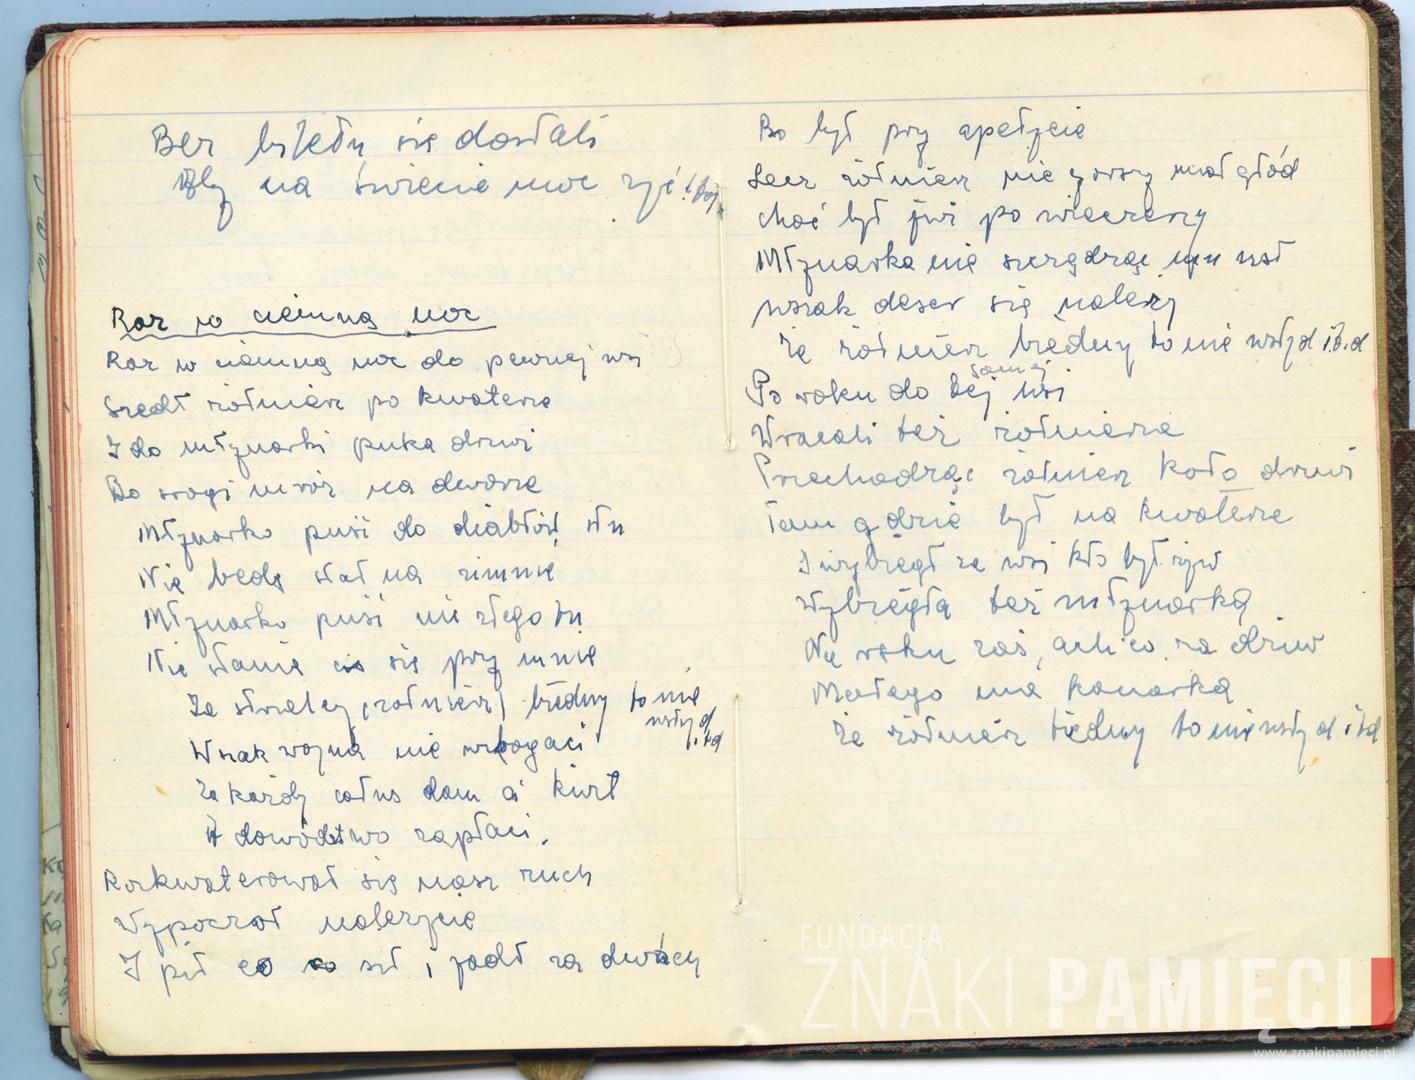 Bez biletu się dostali
By na świecie móc żyć!
Raz w ciemną noc
Raz w ciemną noc do pewnej wsi
Szedł żołnierz po kwaterze
I do młynarki puka drzwi
Bo srogi mróz na dworze
Młynarko puść do diabłów stu
Nie będę stał na zimnie
Młynarko puść nic złego tu
Nie stanie się przy mnie
Że strzelcy (żołnierz) biedny to nie
wstyd
i.t.d
Wszak wojna nie wzbogaci
Za każdy całus dam ci
A dowództwo zapłaci.
Rozkwaterował się nasz zuch
Wypoczął należycie
I pił co sił i jadł za dwóch
Bo był przy apetycie
Lecz żołnierz nie gorszy miał głód
choć był już po wieczerzy
Młynarka nie szczędząc mu
wszak deser się należy
Że żołnierz biedny to nie wstyd i.t.d
samej
Po roku do tej wsi
Wracali też żołnierze
Przechodząc żołnierz koło drzwi
Tam gdzie był na kwaterze
I wybiegł ze wsi kto był żyw
Wybiegła też młynarka
Na ręku zaś, ach co za dziw
Małego ma
Że żołnierz biedny to nie wstyd i td
FUNDACJA
ZNAKI PAMIĘCI
www.znakipamieci.pl